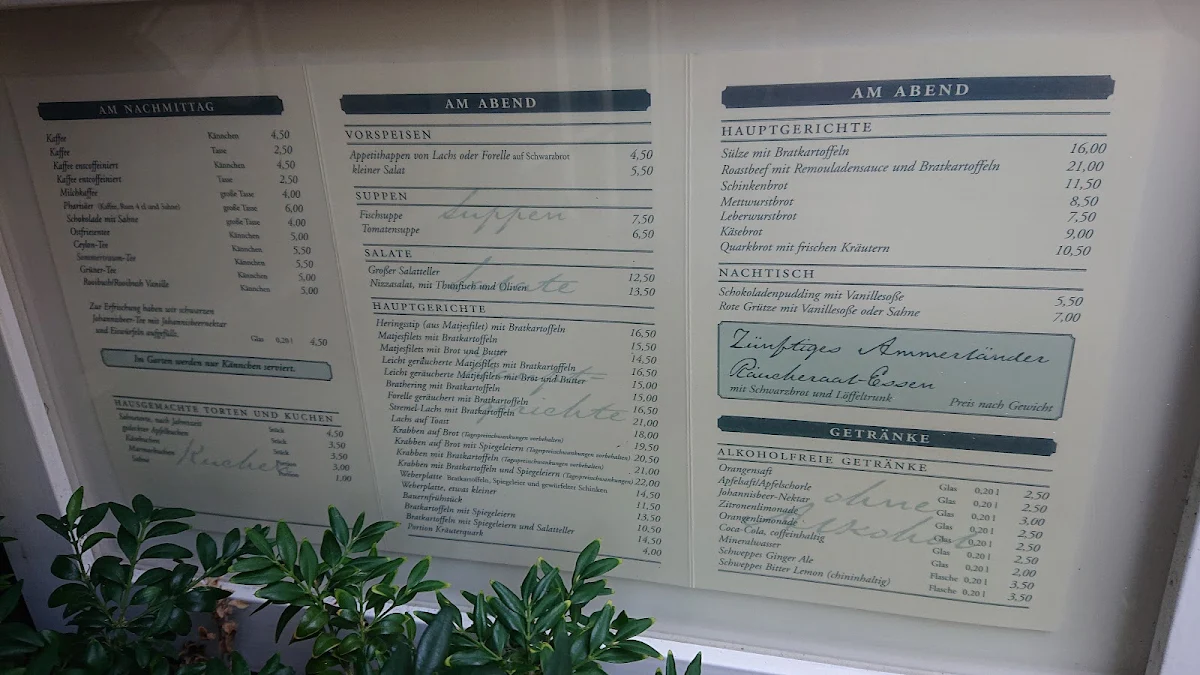 AM NACHMITTAG
Kaffee Kännchen 4,50
Kaffee Tasse 2,50
Kaffee entcoffeiniert Kännchen 4,50
Kaffee entcoffeiniert Tasse 2,50
Milchkaffee große Tasse 4,00
Pharisäer (Kaffee, Rum 4 cl und Sahne) große Tasse 6,00
Schokolade mit Sahne große Tasse 4,00
Ostfriesentee Kännchen 5,00
Ceylon-Tee Kännchen 5,50
Sommertraum-Tee Kännchen 5,50
Grüner-Tee Kännchen 5,00
Rooibusch/Rooibusch Vanille Kännchen 5,00
Zur Erfrischung haben wir schwarzen
Johannisbeer-Tee mit Johannisbeernektar
und Eiswürfeln aufgefüllt. Glas 0,20 l 4,50
Im Garten werden nur Kännchen serviert.
HAUSGEMACHTE TORTEN UND KUCHEN
Kuchen
Sahnetorte, nach Jahreszeit Stück 4,50
gedeckter Apfelkuchen Stück 3,50
Käsekuchen 3,50
Marmorkuchen 3,00
Sahne Portion 1,00
AM ABEND
VORSPEISEN
Appetithappen von Lachs oder Forelle auf Schwarzbrot 4,50
kleiner Salat 5,50
SUPPEN
Suppen
Fischsuppe 7,50
Tomatensuppe 6,50
SALATE
Salate
Großer Salatteller 12,50
Nizzasalat, mit Thunfisch und Oliven 13,50
HAUPTGERICHTE
Heringstip (aus Matjesfilet) mit Bratkartoffeln 16,50
Matjesfilets mit Bratkartoffeln 15,50
Matjesfilets mit Brot und Butter 14,50
Leicht geräucherte Matjesfilets mit Bratkartoffeln 16,50
Leicht geräucherte Matjesfilets mit Brot und Butter 15,00
Brathering mit Bratkartoffeln 15,00
Forelle geräuchert mit Bratkartoffeln 16,50
Stremel-Lachs mit Bratkartoffeln 21,00
Lachs auf Toast 18,00
Krabben auf Brot (Tagespreisschwankungen vorbehalten) 19,50
Krabben auf Brot mit Spiegeleiern (Tagespreisschwankungen vorbehalten) 20,50
Krabben mit Bratkartoffeln (Tagespreisschwankungen vorbehalten) 21,00
Krabben mit Bratkartoffeln und Spiegeleiern (Tagespreisschwankungen vorbehalten) 22,00
Weberplatte Bratkartoffeln, Spiegeleier und gewürfelter Schinken 14,50
Weberplatte, etwas kleiner 11,50
Bauernfrühstück 13,50
Bratkartoffeln mit Spiegeleiern 10,50
Bratkartoffeln mit Spiegeleiern und Salatteller 14,50
Portion Kräuterquark 4,00
AM ABEND
HAUPTGERICHTE
Sülze mit Bratkartoffeln 16,00
Roastbeef mit Remouladensauce und Bratkartoffeln 21,00
Schinkenbrot 11,50
Mettwurstbrot 8,50
Leberwurstbrot 7,50
Käsebrot 9,00
Quarkbrot mit frischen Kräutern 10,50
NACHTISCH
Schokoladenpudding mit Vanillesoße 5,50
Rote Grütze mit Vanillesoße oder Sahne 7,00
Zünftiges Ammerländer
Räucheraal-Essen
mit Schwarzbrot und Löffeltrunk Preis nach Gewicht
GETRÄNKE
ALKOHOLFREIE GETRÄNKE
ohne
Alkohol
Orangensaft Glas 0,20 l 2,50
Apfelsaft/Apfelschorle Glas 0,20 l 2,50
Johannisbeer-Nektar Glas 0,20 l 3,00
Zitronenlimonade Glas 0,20 l 2,50
Orangenlimonade Glas 0,20 l 2,50
Coca-Cola, coffeinhaltig Glas 0,20 l 2,50
Mineralwasser Glas 0,20 l 2,00
Schweppes Ginger Ale Flasche 0,20 l 3,50
Schweppes Bitter Lemon (chininhaltig) Flasche 0,20 l 3,50